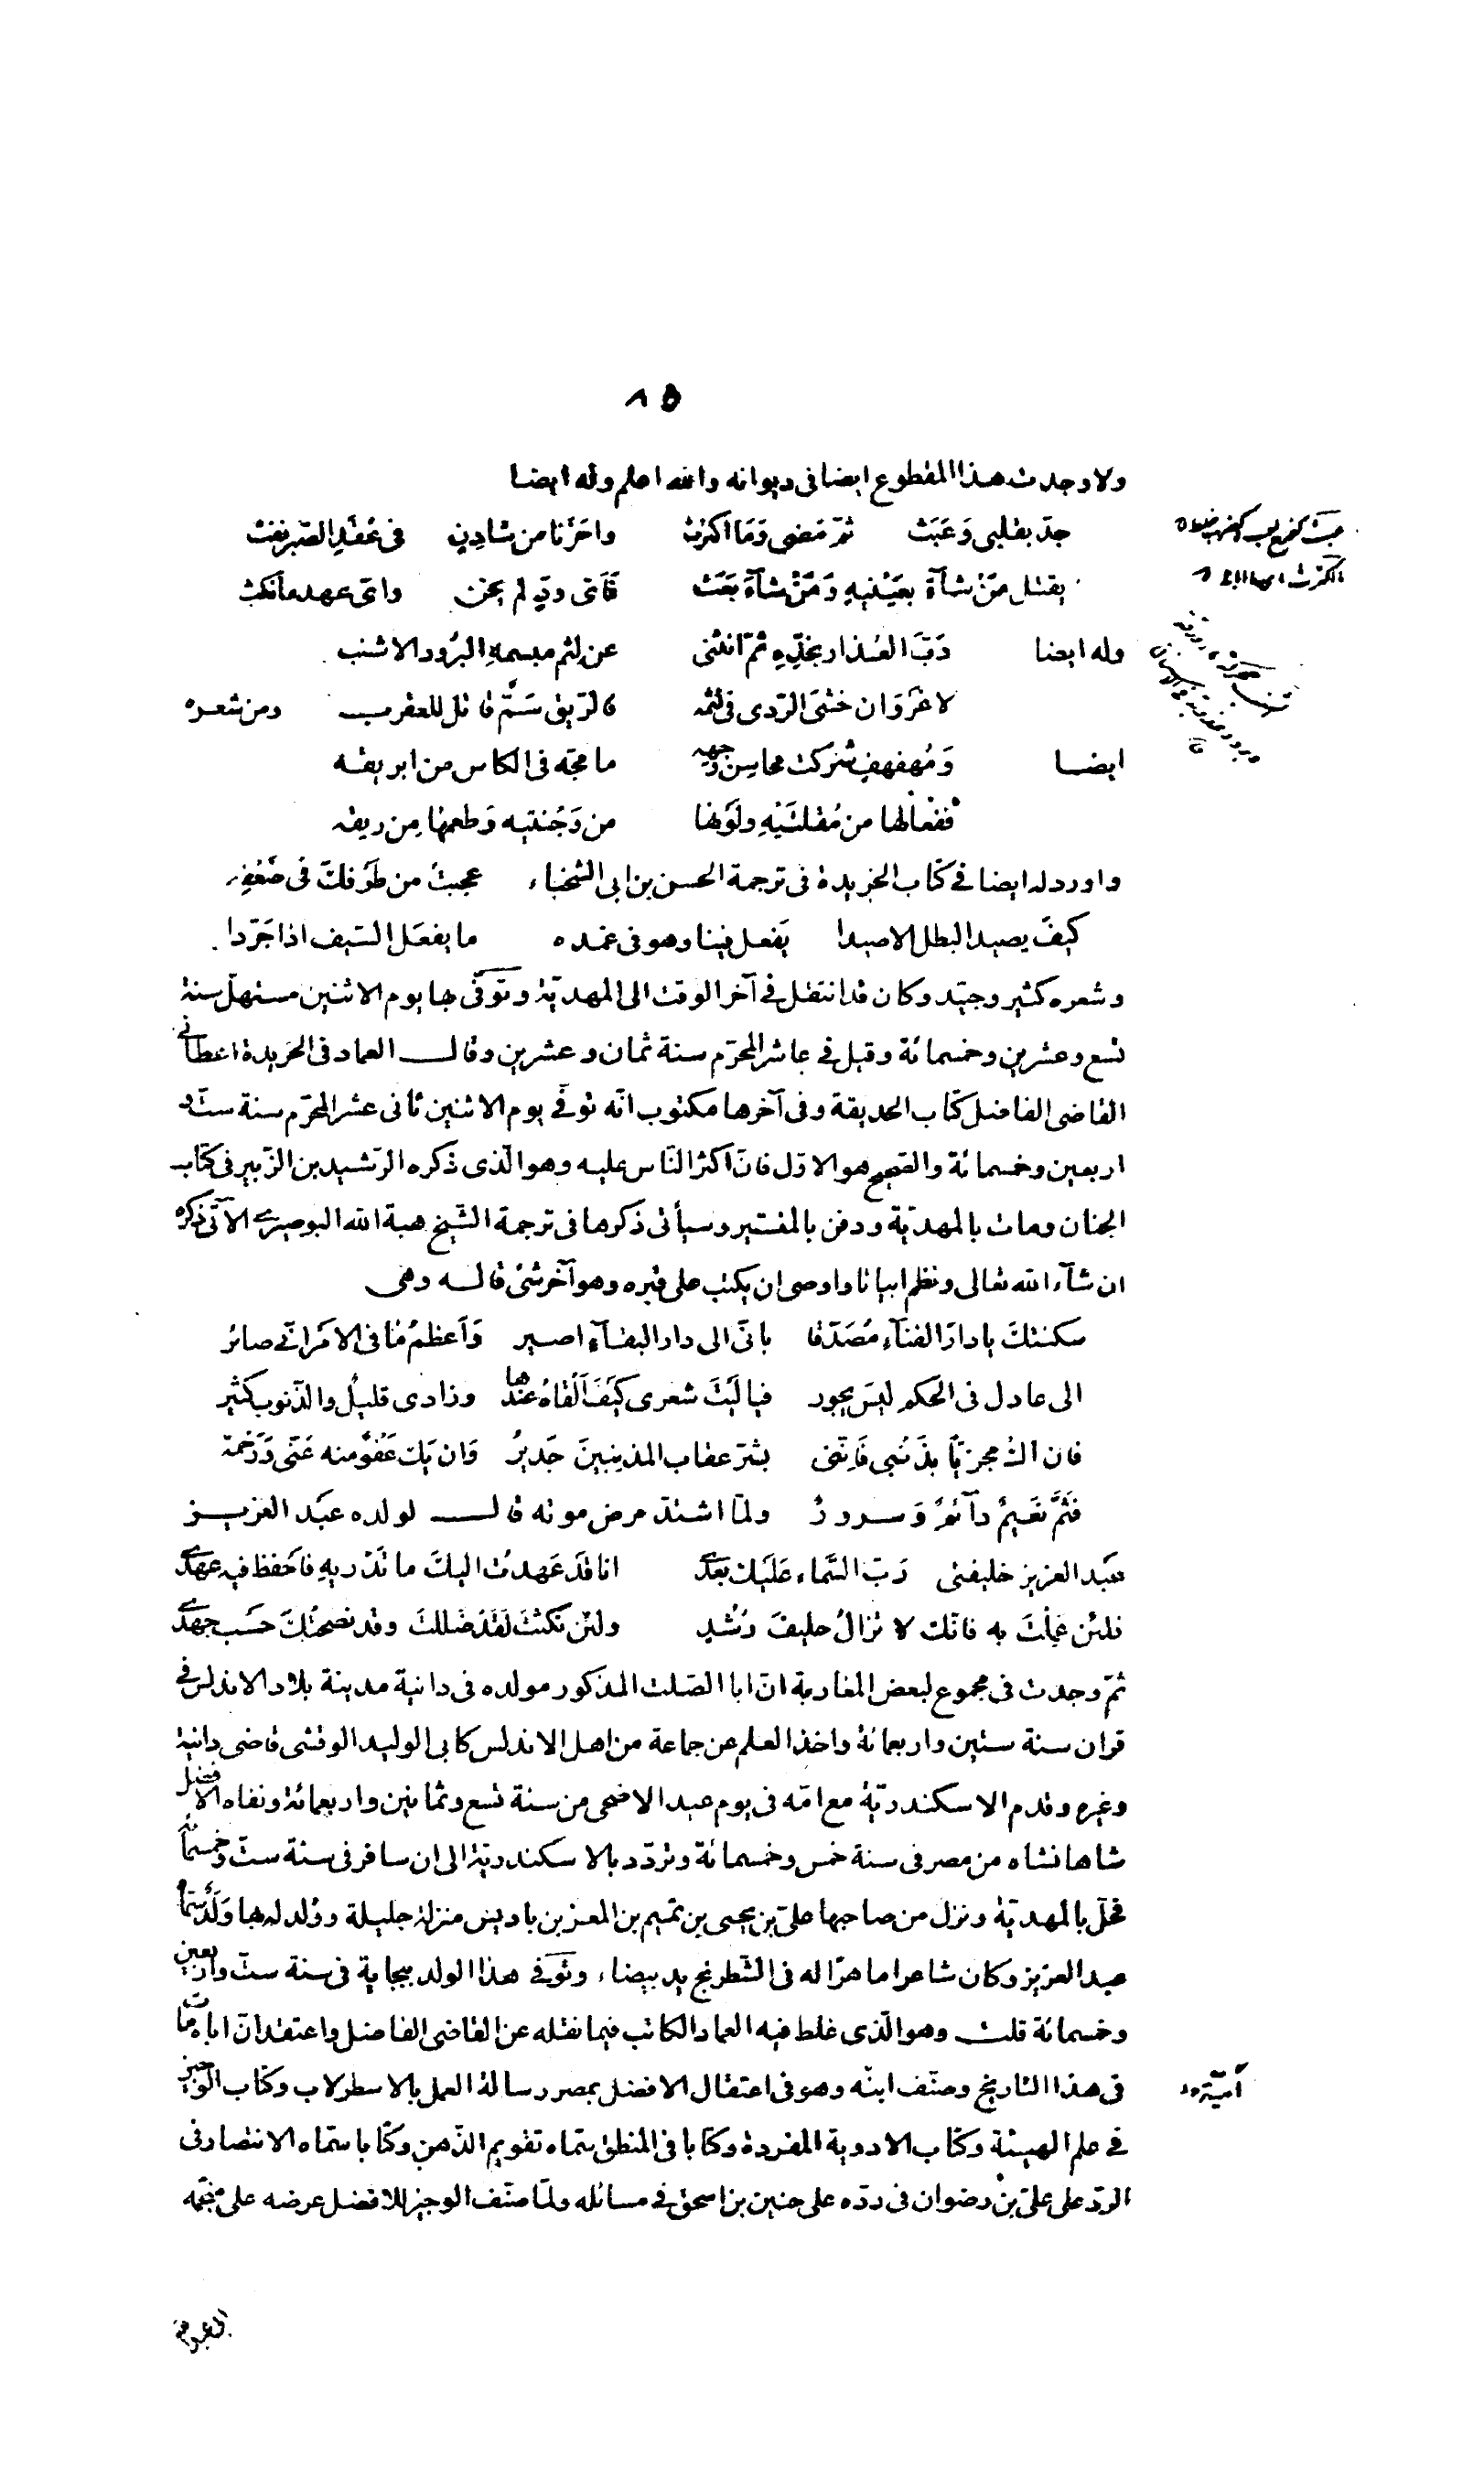 ٨٥
ولا وجدت هذا المقطوع ايضا فى ديوانه والله اعلم وله ايضا
جدّ بقلبى وَعَبَث ثمّ مَضى وَمَا اكترث واحَرَبَا من شادِنٍ فى عُقَدِ الصّبر نفث
يقتل مَنْ شآءَ بعَيْنيهِ وَمَنْ شآءَ بَعَث فَأىّ ودٍّ لم يخن واىّ عهد ما نكث
وله ايضا دَبَّ العذار بخدِّهِ ثمّ انثنى عن لثم مبسمهِ البرُود الاشنب
لا غَرْوَ ان خشىَ الرّدى فى لثمه فالرّيق سَمّ قاتل للعقرب ومن شعره
ايضا وَمُهفهفٍ شركت محاسِن وَجهِهِ ما مجّه فى الكاس من ابريقه
ففعالها من مُقلتَيْهِ ولَونها من وَجْنتيه وَطعمها مِن ريقه
واورد له ايضا فى كتاب الخريدة فى ترجمة الحسن بن ابى الشخباء عجبتُ من طَرْفكَ فى ضَعْفِه
كيفَ يصيد البطل الاصيدا يَفعل فينا وهو فى غمده ما يفعَل السّيف اذا جَرّدا
وشعره كثير وجيّد وكان قد انتقل فى آخر الوقت الى المهديّة وتوَفّى بها يوم الاثنين مستهلّ سنة
تسع وعشرين وخمسمائة وقيل فى عاشر المحرّم سنة ثمان وعشرين وقال العماد فى الخريدة اعطانى
القاضى الفاضل كتاب الحديقة وفى آخرها مكتوب انّه توفّى يوم الاثنين ثانى عشر المحرّم سنة ستّ و
اربعين وخمسمائة والصّحيح هو الاوّل فانّ اكثر النّاس عليه وهو الّذى ذكره الرّشيد بن الزّبير فى كتاب
الجنان ومات بالمهديّة ودفن بالمنستير وسيأتى ذكرها فى ترجمة الشّيخ هبة الله البوصيرى الآتى ذكره
ان شآء الله تعالى ونظم ابياتا واوصى ان يكتب على قبره وهو آخر شئ قاله وهى
سكنتكَ يا دارَ الفنآء مُصَدّقا بانّى الى دار البقآء اصير وَاَعظمُ مَا فى الامَر انّى صائر
الى عادل فى الحكم ليسَ يجور فيا لَيْتَ شعرى كيَفَ اَلقاهُ عندها وزادى قليلُ والذّنوب كثير
فان الـُ مجزيّاً بذَنبى فَاِنّنى بشرّ عقاب المذنِبينَ جَديرُ وَان يَك عَفوٌ منه عَنّى وَرَحمة
فَثَمَّ نَعَيمٌ دآئمٌ وَسرورُ ولمّا اشتدّ مرض موته قال لولده عبد العزيز
عبد العزيز خليفتى رَبّ السّماء عَلَيك بَعدى انا قدَ عَهدتُ اليكَ ما تَدْريهِ فاحَفظ فيه عهدى
فلئن عمِلتَ به فانّك لا تزالُ حليفَ رُشدِ ولئن نكَثتَ لقَدَ ضَللتَ وقد نصحتُكَ حسَب جهدى
ثمّ وجدت فى مجموع لبعض المغاربة انّ ابا الصّلت المذكور مولده فى دانية مدينة بلاد الاندلس فى
قران سنة ستّين واربعمائة واخذ العلم عن جماعة من اهل الاندلس كابى الوليد الوقشى قاضى دانية
وغيره وقدم الاسكندريّة مع امّه فى يوم عيد الاضحى من سنة تسع وثمانين واربعمائة ونفاه الافضل
شاهانشاه من مصر فى سنة خمس وخمسمائة وتردّد بالاسكندريّة الى ان سافر فى سنة ستّ وخمسمائة
فحلّ بالمهديّة ونزل من صاحبها علىّ بن يحيى بن تميم بن المعز بن باديس منزلة جليلة ووُلد له بها وَلَدٌ سمّاه
عبد العزيز وكان شاعرا ماهرًا له فى الشّطرنج يد بيضاء وتوَفّى هذا الولد ببجاية فى سنة ستّ واربعين
وخمسمائة قلت وهو الّذى غلط فيه العماد الكاتب فيما نقله عن القاضى الفاضل واعتقد انّ اباه مات
فى هذا التاريخ وصنّف ابنّه وهو فى اعتقال الافضل بمصر رسالة العمل بالاسطرلاب وكتاب الوجيز
فى علم الهيئة وكتاب الادوية المفردة وكتابا فى المنطق سمّاه تقويم الذّهن وكتابا سمّاه الانتصار فى
الردّ على علىّ بن رضوان فى ردّه على حنين بن اسحق فى مسائله ولمّا صنّف الوجيز للافضل عرضه على منجّمه
اُميّة